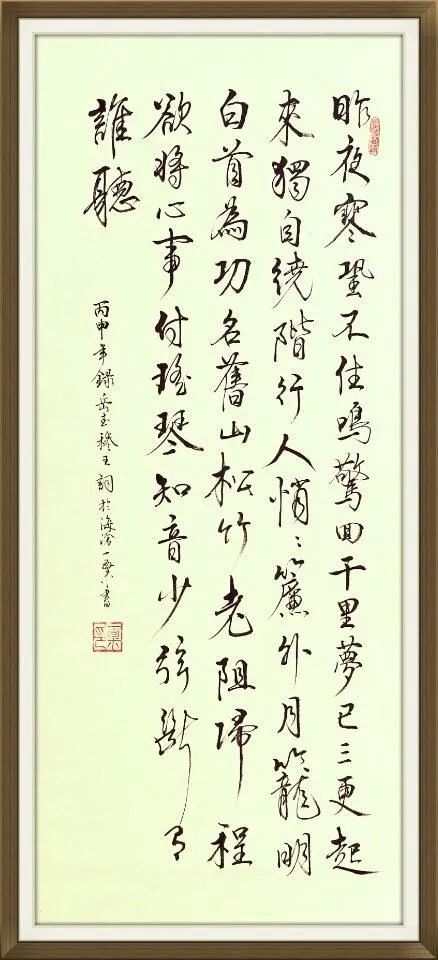 昨夜寒蛩不住鳴驚回千里夢已三更起
來獨自繞階行人悄〻簾外月籠明
白首為功名舊山松竹老阻歸程
欲將心事付瑤琴知音少弦斷有
誰聽
丙申年錄岳武穆王詞於海一書